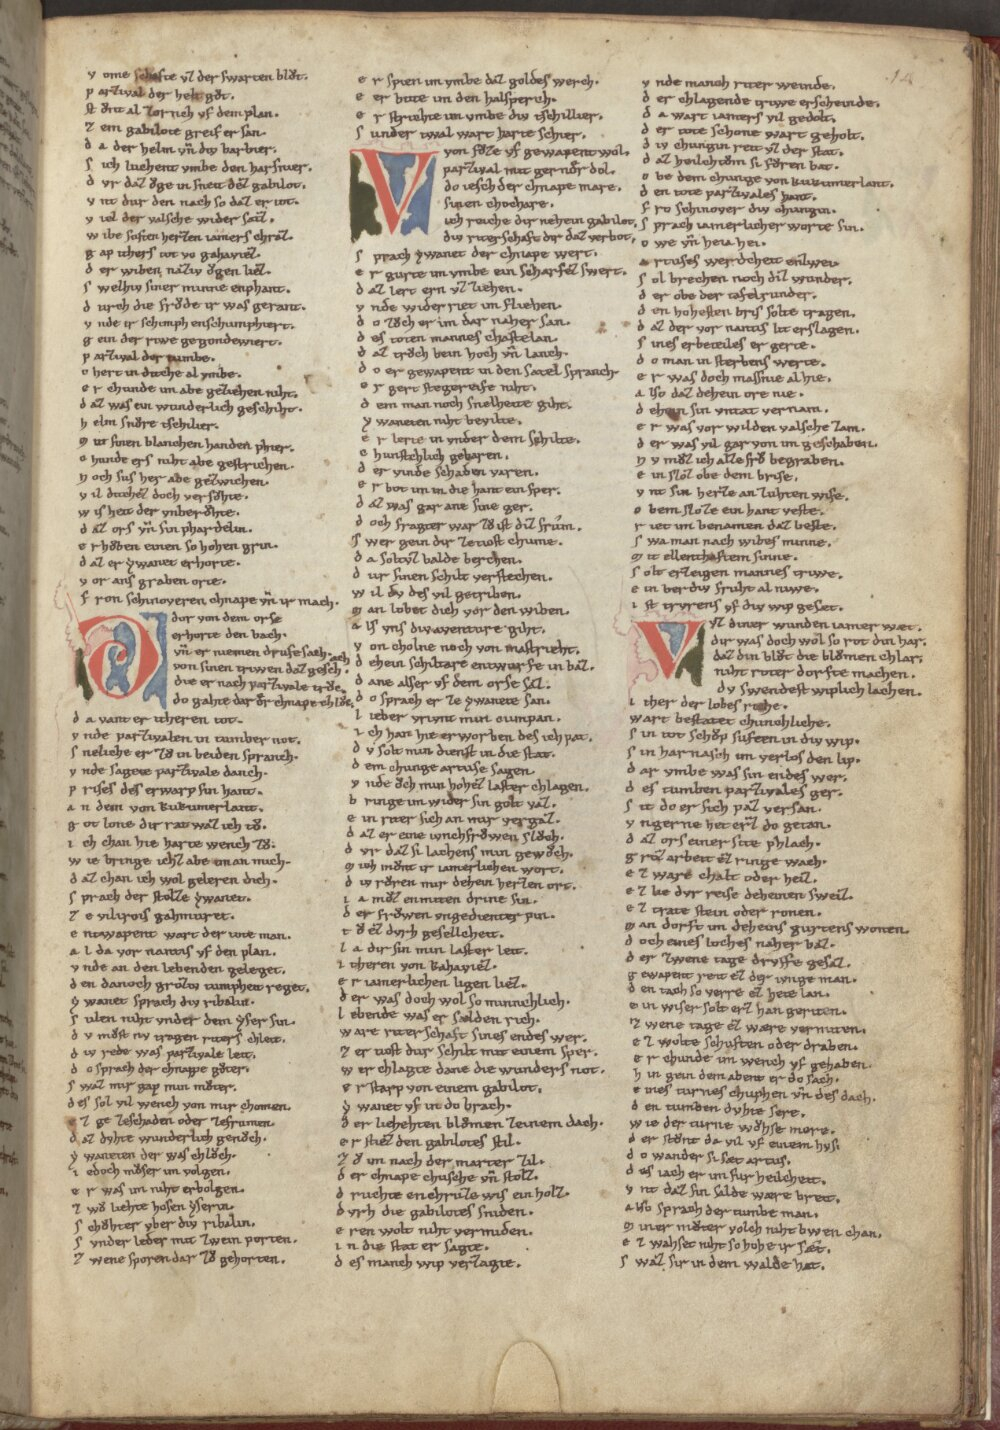 v ome schafte vz der swarten blůt.
p arzival der helt gůt.
st ůnt al zornch vf dem plan.
z em gabilote greif er san.
d a der helm vn̄ div barbier.
s ich luehent vmbe den harsnier.
d vr daz ǒge in sneit dez gabilot.
v nt dur den nach so daz er tot.
v iel der valsche wider saz.
w ibe sŏften herzen iamers chraz.
g ap ithers tot vo gahaviez.
d er wiben nazziv ǒgen liez.
s welhiv siner minne enphant.
d urch die frǒde ir was gerant.
v nde ir schimph enschumphiert.
g ein der riwe gegondewiert.
p arzival der tumbe.
c hert in dicche al vmbe.
e r chunde im abe geziehen niht.
d az was ein wunderlich geschiht.
h elm snůre tschilier.
m it sinen blanchen handen phier.
c hunde ers niht abe gestrichen.
n och sus her abe gezwichen.
v il dicchez doch versůhte.
w isheit der vnberůhte.
d az ors vn̄ sin phardelin.
e rhůben einen so hohen grin.
d az er ẏwanet erhorte.
v or ans graben orte.
f ron schinoveren chnape vn̄ ir mach.
Dor von dem orse
erhorte den bach.
vn̄ er niemen drufe sach.
von sinen triwen daz gesch. ach
die er nach parzivale trůc.
do gahte dar der chnape chlůc.
d a vant er itheren tot.
v nde parzivalen in tumber not.
s nelliche er zů in beiden spranch.
v nde sagete parzivale danch.
p rises des erwarp sin hant.
a n dem von kukumerlant.
g ot lone dir rat waz ich tů.
i ch chan hie harte wench zů.
w ie bringe ichz abe im an mich.
d az chan ich wol geleren dich.
s prach der stolze ẏwanet.
z e vilirois gahmuret.
e ntwapent wart der tote man.
a l da vor nantis vf den plan.
v nde an den lebenden geleget.
d en danoch grŏziv tumpheit reget.
ẏ wanet sprach div ribalin.
s ulen niht vnder dem ẏser sin.
d v můst nv tragen riters chleit.
d iv rede was parzivale leit.
d o sprach der chnape gůter.
s waz mir gap min můter.
d es sol vil wench von mir chomen.
e z ge zeschaden oder zefrumen.
d az dvhte wunderlich genůch.
ẏ waneten der was chlůch.
i edoch můser im volgen.
e r was im niht erbolgen.
z wo liehte hosen ẏserin.
s chǔhter vber div ribalin.
s vnder leder mit zwein porten.
z wene sporen dar zů gehorten.
e r spien im vmbe daz goldes werch.
e er bute im den halsperch.
e r strichte im vmbe div tschillier.
s under twal wart harte schier.
Von fůze vf gewapent wol.
parzival mit gernder dol.
do iesch der chnape mare.
sinen chochare.
ich reiche dir nehein gabilot.
div riterschaft dir daz verbot.
s prach ẏwanet der chnape wert.
e r gurte im vmbe ein scharfez swert.
d az lert ern vz ziehen.
v nde wider riet im fliehen.
d o zǒch er im dar naher san.
d es toten mannes chastelan.
d az trǔch bein hoch vn̄ lanch.
d o er gewapent in den satel spranch
e r gert stegereife niht.
d em man noch snelheite giht.
ẏ waneten niht bevilte.
e r lerte in vnder dem schilte.
c hunstchlich gebaren.
d er vinde schaben varen.
e r bot im in die hant ein sper.
d az was gar ane sine ger.
d och fragter war zů ist diz frům.
s wer gein dir ze tiost chume.
d a soltvz balde berchen.
d ur sinen schilt verstechen.
w il dv des vil getriben.
m an lobet dich vor den wiben.
a ls vns div aventure giht.
v on cholne noch von mastricht.
d ehein schiltare entwurfe in baz.
d ane alser vf dem orse saz.
d o sprach er ze ẏwanete san.
l ieber vrivnt min cumpan.
i ch han hie erworben des ich pat.
d v solt min dienst in die stat.
d em chunge artuse sagen
v nde ǒch min hohez laster chlagen.
b ringe im wider sin golt vaz.
e in riter sich an mir vergaz.
d az er eine ivnchfrǒwen slůch.
d vr daz si lachens min gewůch.
m ich můnt ir iamerlichen wort.
d iv růren mir dehein herzen ort.
i a můz enmiten drine sin.
d er frǒwen vngedienter pin.
t ů ez dvrh gesellcheit.
l a dir sin min laster leit.
i theren von kahaviez.
e r iamerlichen ligen liez.
d er was doch wol so minnchlich.
l ebende was er sælden rich.
w are riterschaft sines endes wer.
z er tiost dur schilt mit einem sper.
w er chlagte dane die wunders not.
e r starp von einem gabilot.
ẏ wanet vf in do brach.
d er liehehten blůmen zeinem dach.
e r stiez den gabilotes stil.
z ů im nach der marter zil.
d er chnape chusche vn̄ stolz.
d ruchte en chruze wis ein holz.
d vrh die gabilotes sniden.
e ren wolt niht vermiden.
i n die stat er sagte.
d es manch wip verzagte.
v nde manch riter weinde.
d er chlagende triwe erscheinde.
d a wart iamers vil gedolt.
d er tote schone wart geholt.
d iv chungin reit vz der stat.
d az heilchtům si fůren bat.
o be dem chunge von kukumerlant.
d en tote parzivales hant.
f ro schinover div chungin.
s prach iamerlicher worte sin.
o we vn̄ heia hei.
a rtuses werdcheit enzwei.
s ol brechen noch diz wunder.
d er obe der tafelrunder.
d en hohesten bris solte tragen.
d az der vor nantis lit erslagen.
s ines erbeteiles er gerte.
d o man in sterbens werte.
e r was doch massnie alhie.
a lso daz dehein ore nie.
d ehein sin vntat vernam.
e r was vor wilden valsche zam.
d er was vil gar von im geschaben.
n v můz ich alze frů begraben.
e in sloz obe dem brise.
v nt sin herze an zuhten wise.
o bem sloze ein hant veste.
r iet im benamen daz beste.
s wa man nach wibes minne.
m it ellenthaftem sinne.
s olt erzeigen mannes triwe.
e in berdiv fruht al niwe.
i st trvrens vf div wip gesæt.
Vz diner wunden iamer wæt.
dir was doch wol so rot din har.
daz din blůt die blůmen chlar.
niht roter dorfte machen.
dv swendest wiplich lachen.
i ther der lobes riche.
wart bestatet chunchliche.
s in tot schǒp suften in div wip.
s in harnasch im verlos den lip.
d ar vmbe was sin endes wer.
d es tumben parzivales ger.
s it do er sich paz versan.
v ngerne het erz do getan.
d az ors einer site phlach.
g roz arbeit ez ringe wach.
e z ware chalt oder heiz.
e z lie dvr reise deheinen sweiz.
e z trate stein oder ronen.
m an dorft im deheins gurtens wonen.
d och eines loches naher baz.
d er zwene tage drvffe gesaz.
g ewapent reit ez der ivnge man.
d en tach so verre ez hete lan.
e in wiser solt erz han geriten.
z wene tage ez wære vermiten.
e z wolte schuften oder draben.
e r chunde im wench vf gehaben.
h in gein dem abent er do sach.
e ines turnes chuphen vn̄ des dach.
d en tumben dvhte sere.
w ie der turne wůhse mere.
d er stůnt da vil vf einem hvs.
d o wander si sæt artus.
d es iach er im fur heilcheit.
v nt daz sin sælde wære breit.
a lso sprach der tumbe man.
m iner můter volch niht bwen chan.
e z wahset niht so hohe ir sæt.
s waz sir in dem walde hat.